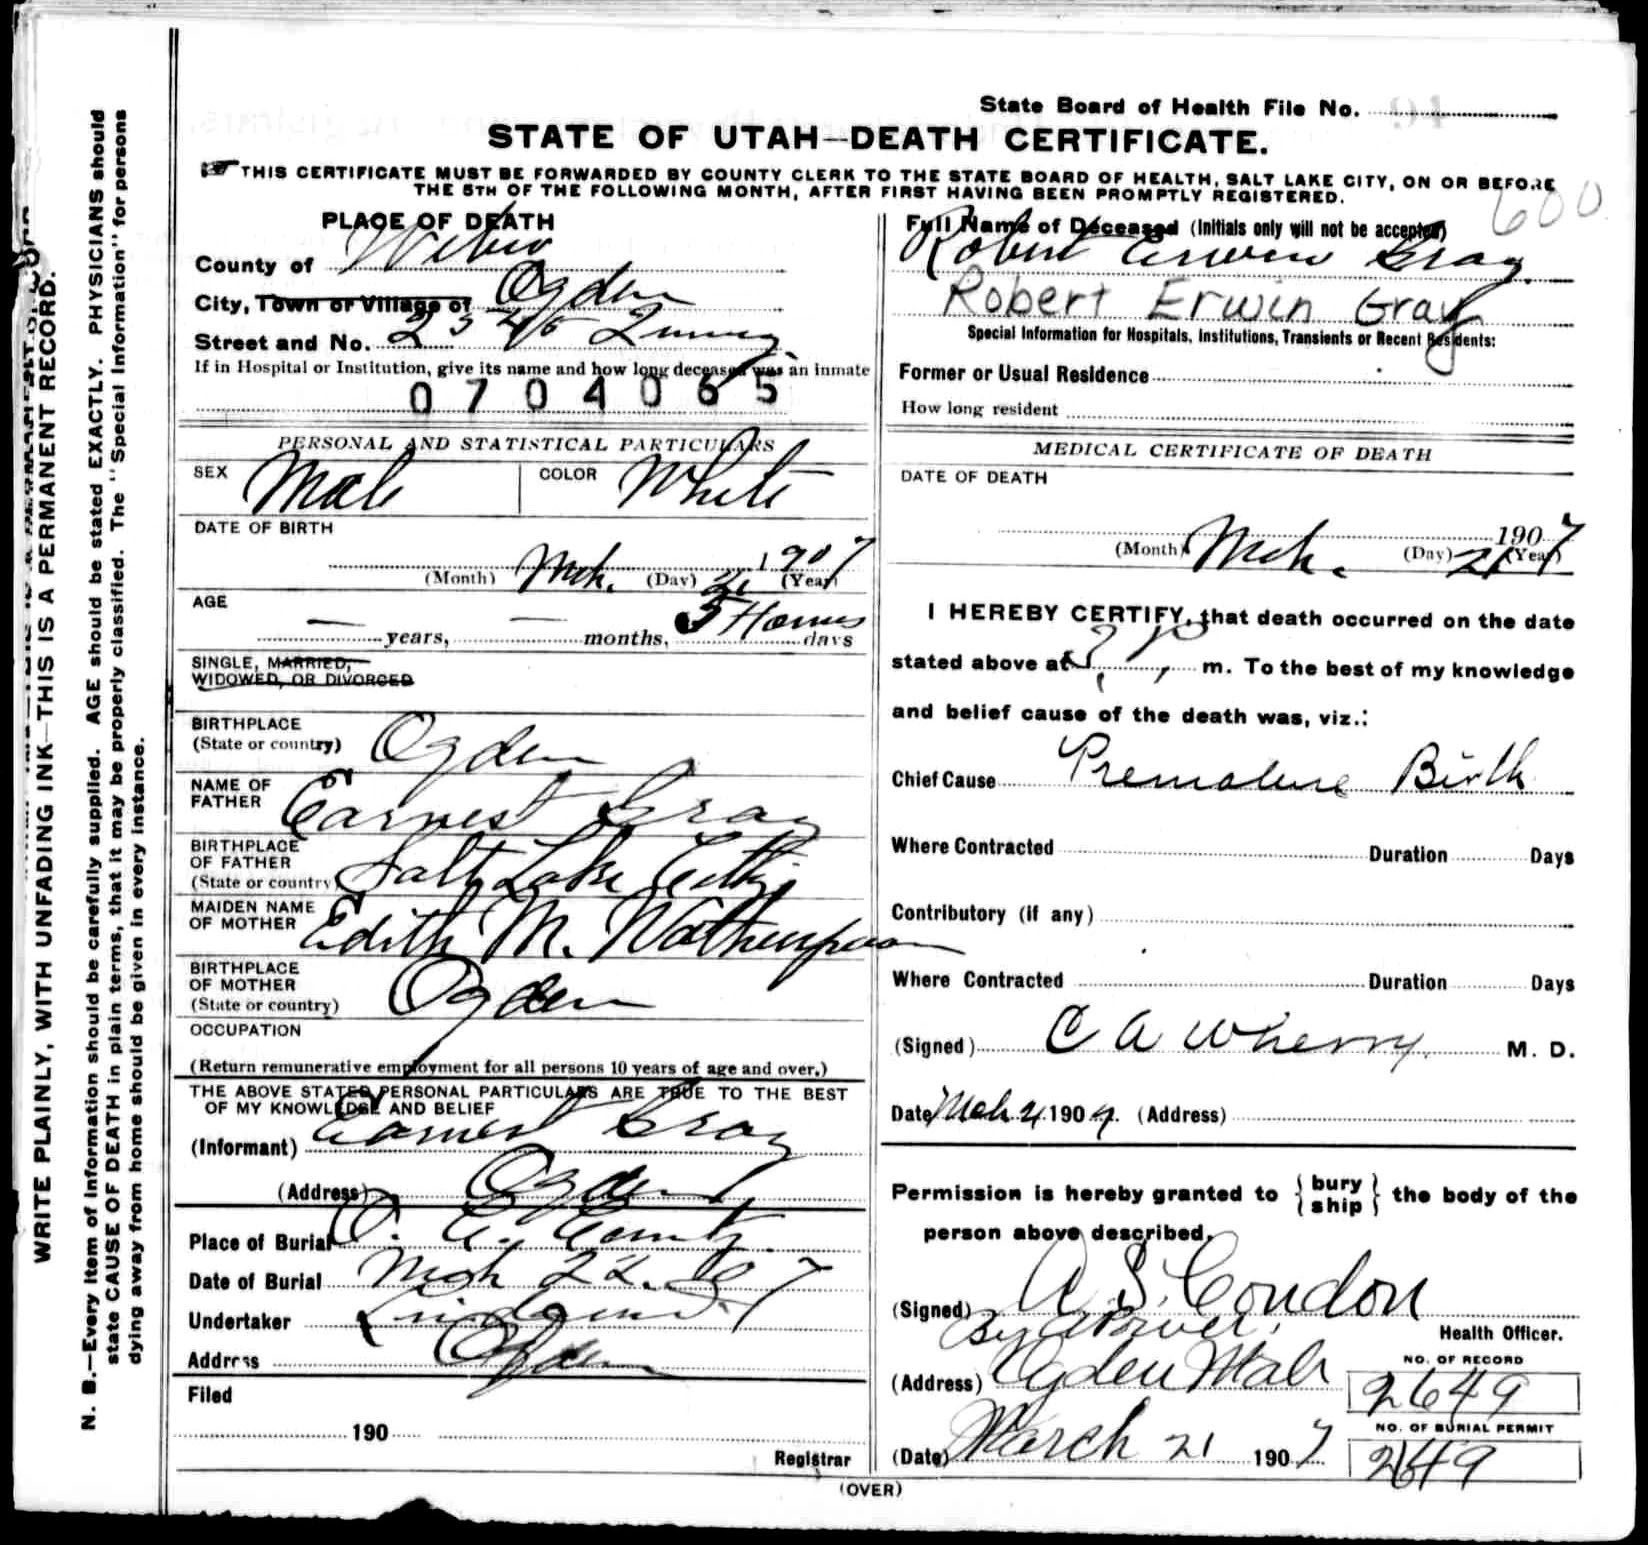 State Board of Health File No.
STATE OF UTAH—DEATH CERTIFICATE.
THIS CERTIFICATE MUST BE FORWARDED BY COUNTY CLERK TO THE STATE BOARD OF HEALTH, SALT LAKE CITY, ON OR BEFORE
THE 5TH OF THE FOLLOWING MONTH, AFTER FIRST HAVING BEEN PROMPTLY REGISTERED.
600
WRITE PLAINLY, WITH UNFADING INK—THIS IS A PERMANENT RECORD.
N. B.—Every item of information should be carefully supplied. AGE should be stated EXACTLY. PHYSICIANS should
state CAUSE OF DEATH in plain terms, that it may be properly classified. The "Special Information" for persons
dying away from home should be given in every instance.
PLACE OF DEATH
County of Weber
City, Town or Village of Ogden
Street and No. 2345 Quincy
If in Hospital or Institution, give its name and how long deceased was an inmate
0704065
PERSONAL AND STATISTICAL PARTICULARS
SEX Male COLOR White
DATE OF BIRTH
(Month) Mch. (Day) 21 (Year) 1907
AGE
— years, — months, 5 Hours days
SINGLE, MARRIED,
WIDOWED, OR DIVORCED
BIRTHPLACE
(State or country) Ogden
NAME OF
FATHER Earnest Gray
BIRTHPLACE
OF FATHER
(State or country) Salt Lake City
MAIDEN NAME
OF MOTHER Edith M.
BIRTHPLACE
OF MOTHER
(State or country) Ogden
OCCUPATION
(Return remunerative employment for all persons 10 years of age and over.)
THE ABOVE STATED PERSONAL PARTICULARS ARE TRUE TO THE BEST
OF MY KNOWLEDGE AND BELIEF
(Informant) Earnest Gray
(Address) Ogden
Place of Burial O. C. Cemty.
Date of Burial Mch 22. 07
Undertaker
Address Ogden
Filed
190
Registrar
Full Name of Deceased (Initials only will not be accepted)
Robert Erwin Gray
Robert Erwin Gray
Special Information for Hospitals, Institutions, Transients or Recent Residents:
Former or Usual Residence
How long resident
MEDICAL CERTIFICATE OF DEATH
DATE OF DEATH
1907
(Month) Mch. (Day) 21 (Year) 7
I HEREBY CERTIFY, that death occurred on the date
stated above at m. To the best of my knowledge
and belief cause of the death was, viz.:
Chief Cause Premature Birth
Where Contracted Duration Days
Contributory (if any)
Where Contracted Duration Days
(Signed) C A Wherry M. D.
Date Mch 21 1907. (Address)
Permission is hereby granted to { bury
ship } the body of the
person above described.
(Signed) A. S. Condon
By
Health Officer.
(Address) Ogden Utah
NO. OF RECORD
2649
NO. OF BURIAL PERMIT
2649
(Date) March 21 1907
(OVER)